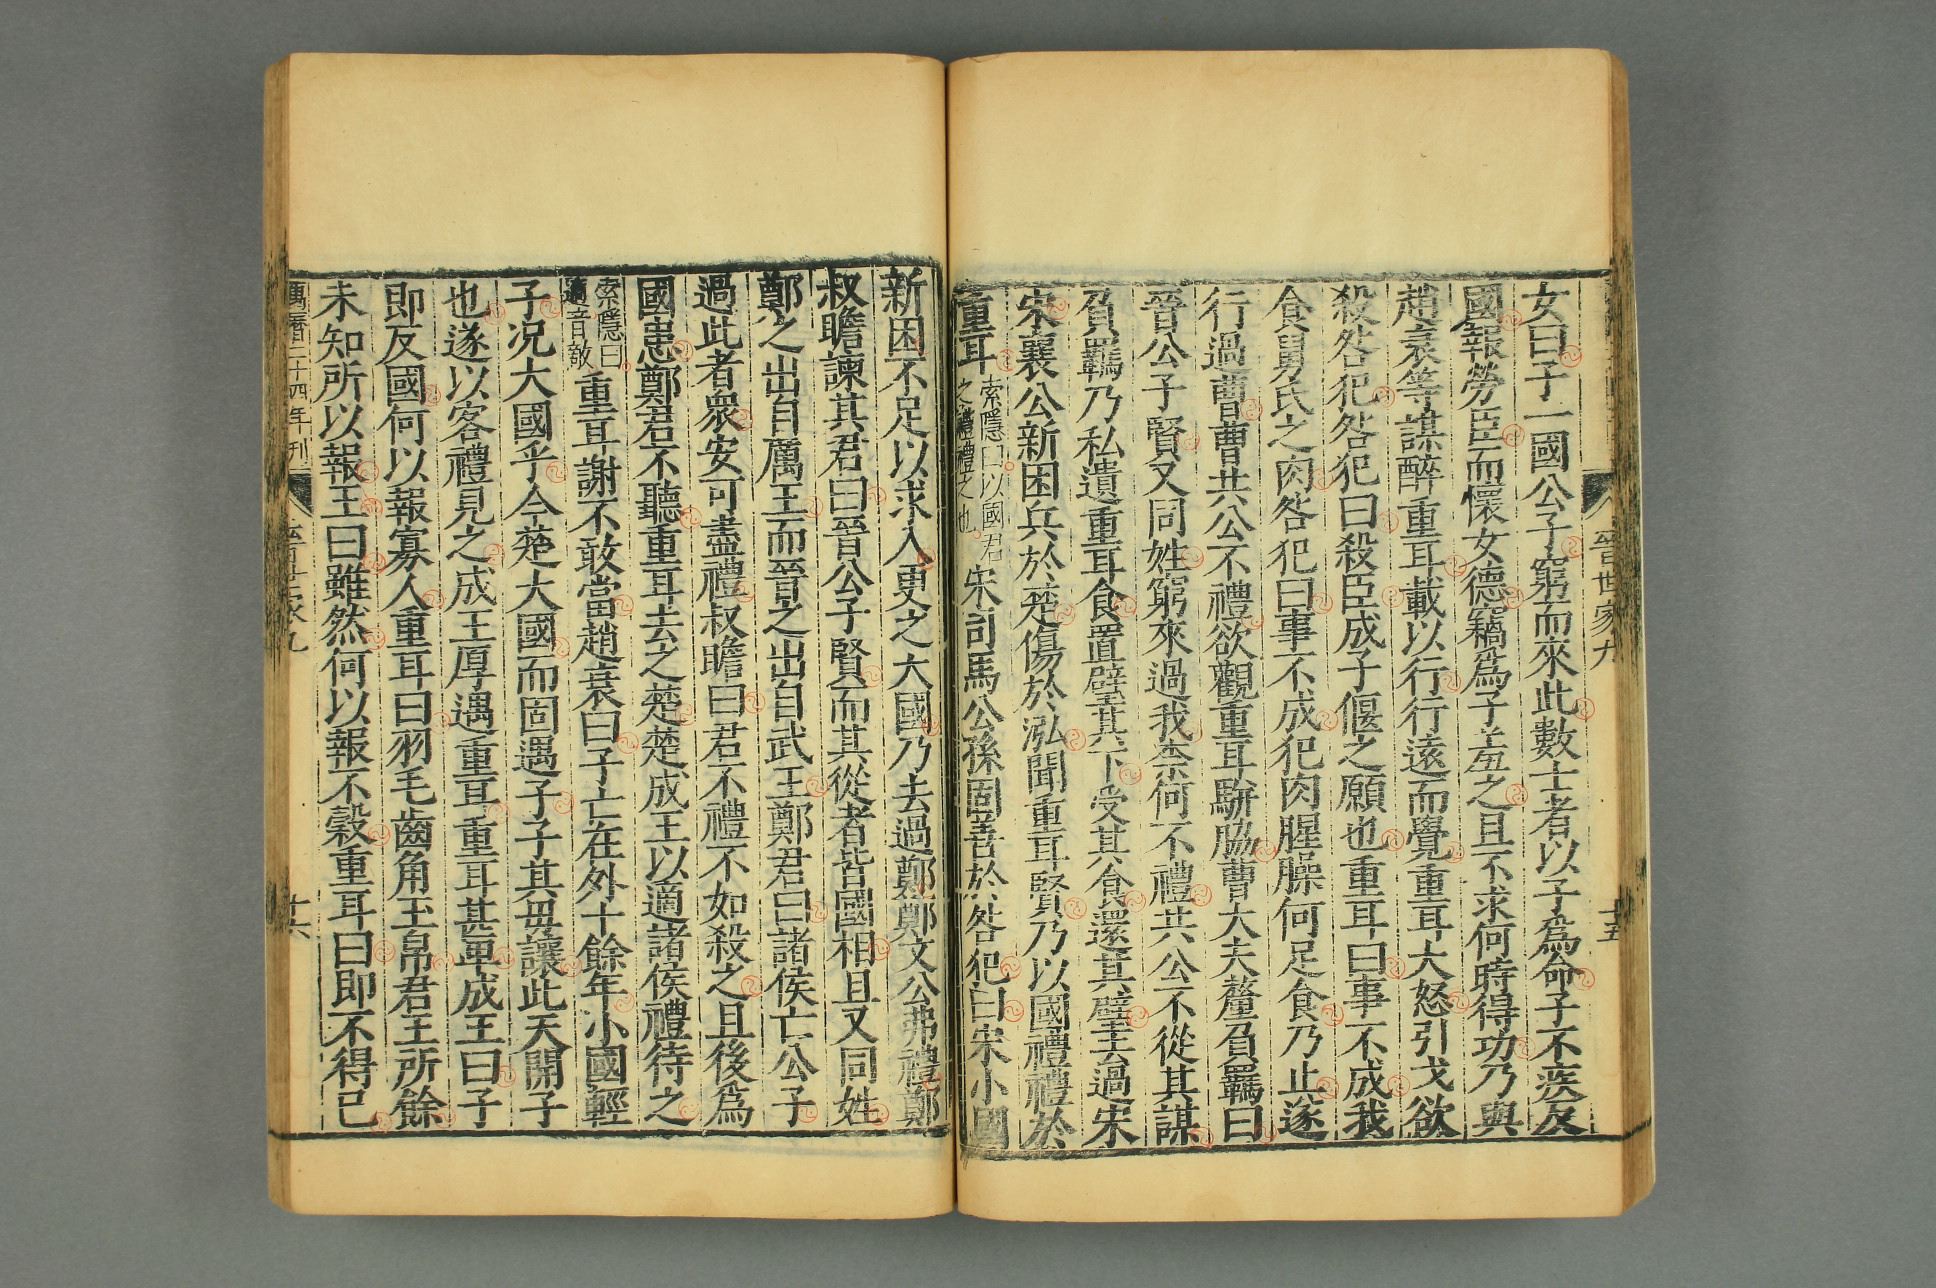 女曰子一國公子窮而來此數士者以子爲命子不疾反
國報勞臣而懷女德竊爲子羞之且不求何時得功乃與
趙衰等謀醉重耳載以行行遠而覺重耳大怒引戈欲
殺咎犯咎犯曰殺臣成子偃之願也重耳曰事不成我
食舅氏之肉咎犯曰事不成犯肉腥臊何足食乃止遂
行過曹曹共公不禮欲觀重耳駢脇曹大夫釐負羈曰
晉公子賢又同姓窮來過我柰何不禮共公不從其謀
負羈乃私遺重耳食置璧其下受其食還其璧去過宋
宋襄公新困兵於楚傷於泓聞重耳賢乃以國禮禮於
重耳索隱曰以國君之禮禮之也宋司馬公孫固善於咎犯曰宋小國
晉世家九
十五
新困不足以求入更之大國乃去過鄭鄭文公弗禮鄭
叔瞻諫其君曰晉公子賢而其從者皆國相且又同姓
鄭之出自厲王而晉之出自武王鄭君曰諸侯亡公子
過此者衆安可盡禮叔瞻曰君不禮不如殺之且後爲
國患鄭君不聽重耳去之楚楚成王以適諸侯禮待之
索隱曰適音敵重耳謝不敢當趙衰曰子亡在外十餘年小國輕
子况大國乎今楚大國而固遇子子其毋讓此天開子
也遂以客禮見之成王厚遇重耳重耳甚卑成王曰子
即反國何以報寡人重耳曰羽毛齒角玉帛君王所餘
未知所以報王曰雖然何以報不穀重耳曰即不得已
萬曆二十四年刊
晉世家九
十六